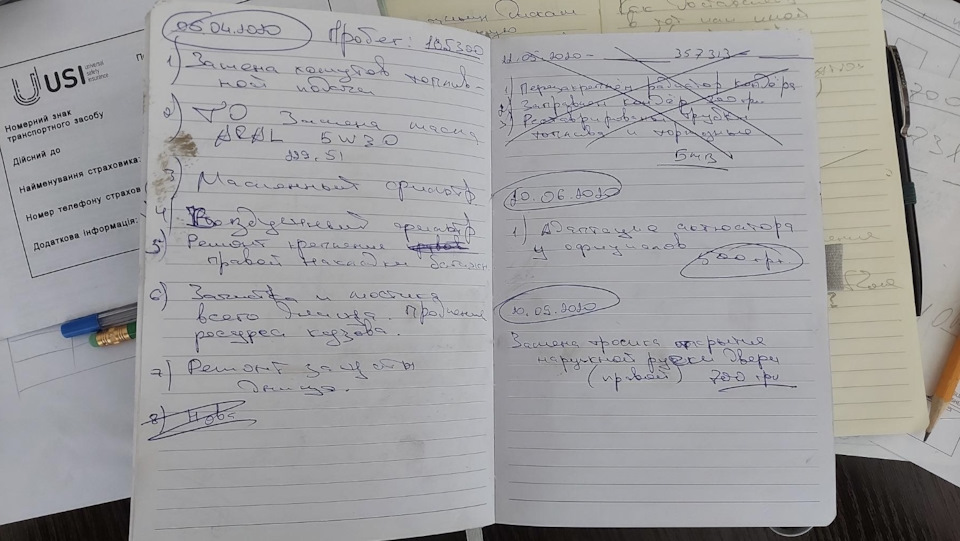 USI universal safety insurance
Номерний знак
транспортного засобу
Дійсний до
Найменування страховика:
Номер телефону страхов
Додаткова інформація:
06.04.2020 Пробег: 165300
1) Замена хомутов топлив-
ной подачи
2) ТО Замена масла
ARAL 5W30
3) Масленный фильтр
4 Воздушный фильтр
5) Ремонт крепление
правой накладки багажн
6) Зачистка и мастика
всего днища. Продление
ресурса кузова.
7) Ремонт защиты
днища.
8) Нова
11.05.2020 - 357313
1) радиатор кондёра
2) Заправили кондер
3) Реставрированы трубки
топлива и тормозные
БМВ
20.06.2020
1) Адаптация актюатора
у официалов
500 грн.
10.05.2020
Замена тросика открытия
наружной ручки двери
(правой) 700 грн